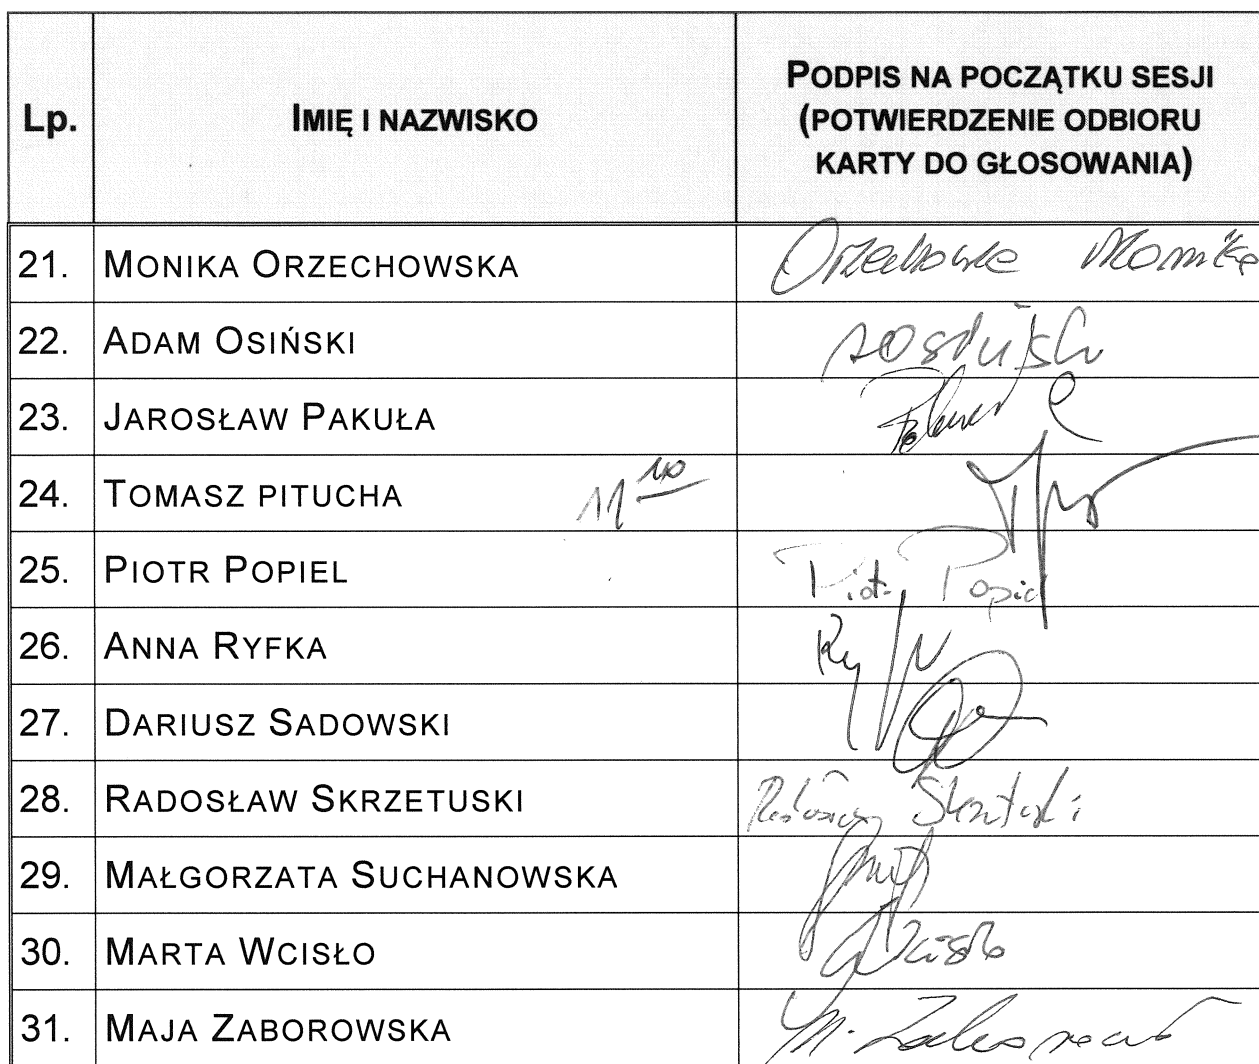 Lp.
IMIĘ I NAZWISKO
PODPIS NA POCZĄTKU SESJI
(POTWIERDZENIE ODBIORU
KARTY DO GŁOSOWANIA)
21. MONIKA ORZECHOWSKA Orzechowska Monika
22. ADAM OSIŃSKI
23. JAROSŁAW PAKUŁA
24. TOMASZ PITUCHA 11 40
25. PIOTR POPIEL Piotr Popiel
26. ANNA RYFKA
27. DARIUSZ SADOWSKI
28. RADOSŁAW SKRZETUSKI
29. MAŁGORZATA SUCHANOWSKA
30. MARTA WCISŁO Wcisło
31. MAJA ZABOROWSKA